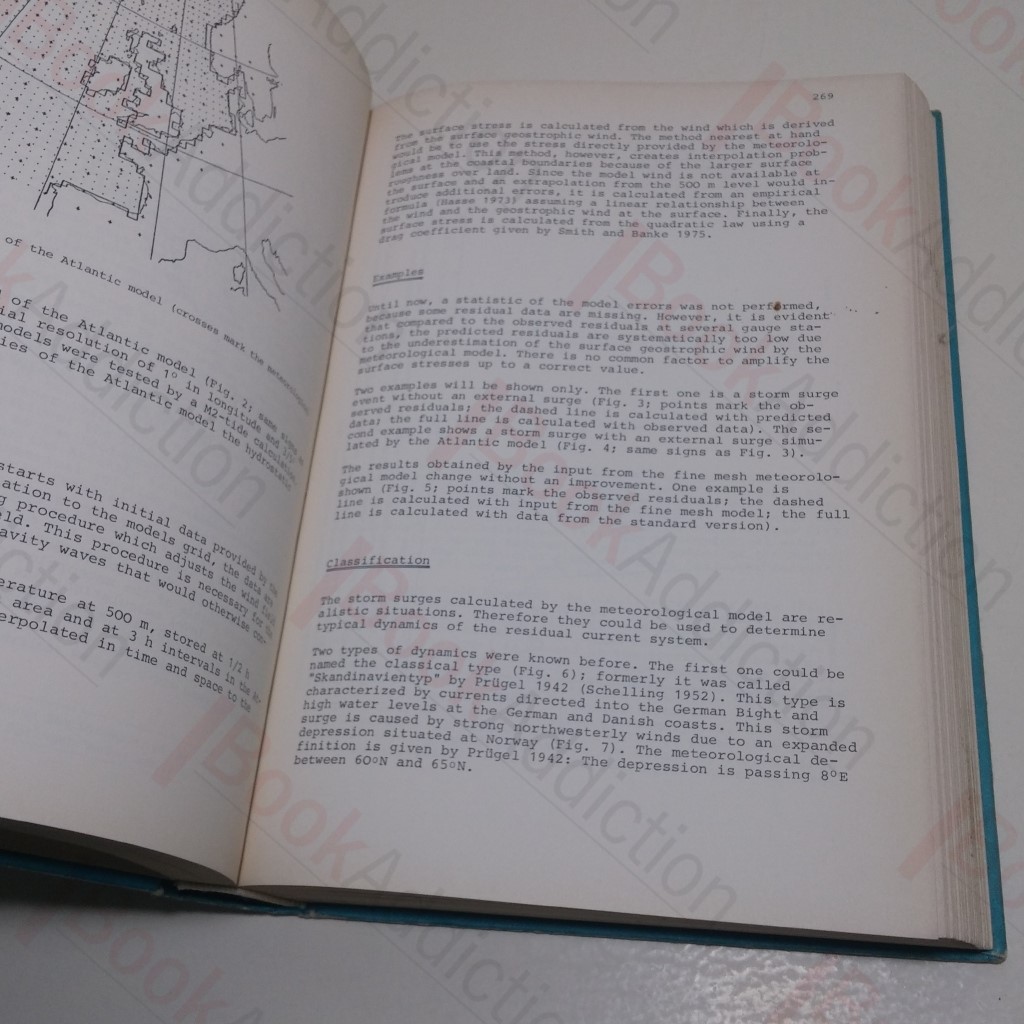 of the Atlantic model (crosses mark the meteorological
of the Atlantic model (Fig. 2; same signs
ial resolution of 1° in longitude and
models were tested by a M2-tide calculation
ies of the Atlantic model the hydrostatic
starts with initial data provided by the
ation to the models grid, the data are
g procedure which adjusts the wind field
eld. This procedure is necessary, for the
avity waves that would otherwise con-
erature at 500 m, stored at 1/2 h
area and at 3 h intervals in the
erpolated in time and space to the
269
The surface stress is calculated from the wind which is derived
from the surface geostrophic wind. The method nearest at hand
would be to use the stress directly provided by the meteorolo-
gical model. This method, however, creates interpolation prob-
lems at the coastal boundaries because of the larger surface
roughness over land. Since the model wind is not available at
the surface and an extrapolation from the 500 m level would in-
troduce additional errors, it is calculated from an empirical
formula (Hasse 1973) assuming a linear relationship between
the wind and the geostrophic wind at the surface. Finally, the
surface stress is calculated from the quadratic law using a
drag coefficient given by Smith and Banke 1975.
Examples
Until now, a statistic of the model errors was not performed,
because some residual data are missing. However, it is evident
that compared to the observed residuals at several gauge sta-
tions, the predicted residuals are systematically too low due
to the underestimation of the surface geostrophic wind by the
meteorological model. There is no common factor to amplify the
surface stresses up to a correct value.
Two examples will be shown only. The first one is a storm surge
event without an external surge (Fig. 3; points mark the ob-
served residuals; the dashed line is calculated with predicted
data; the full line is calculated with observed data). The se-
cond example shows a storm surge with an external surge simu-
lated by the Atlantic model (Fig. 4; same signs as Fig. 3).
The results obtained by the input from the fine mesh meteorolo-
gical model change without an improvement. One example is
shown (Fig. 5; points mark the observed residuals; the dashed
line is calculated with input from the fine mesh model; the full
line is calculated with data from the standard version).
Classification
The storm surges calculated by the meteorological model are re-
alistic situations. Therefore they could be used to determine
typical dynamics of the residual current system.
Two types of dynamics were known before. The first one could be
named the classical type (Fig. 6); formerly it was called
"Skandinavientyp" by Prügel 1942 (Schelling 1952). This type is
characterized by currents directed into the German Bight and
high water levels at the German and Danish coasts. This storm
surge is caused by strong northwesterly winds due to an expanded
depression situated at Norway (Fig. 7). The meteorological de-
finition is given by Prügel 1942: The depression is passing 8°E
between 60°N and 65°N.
BookAddiction